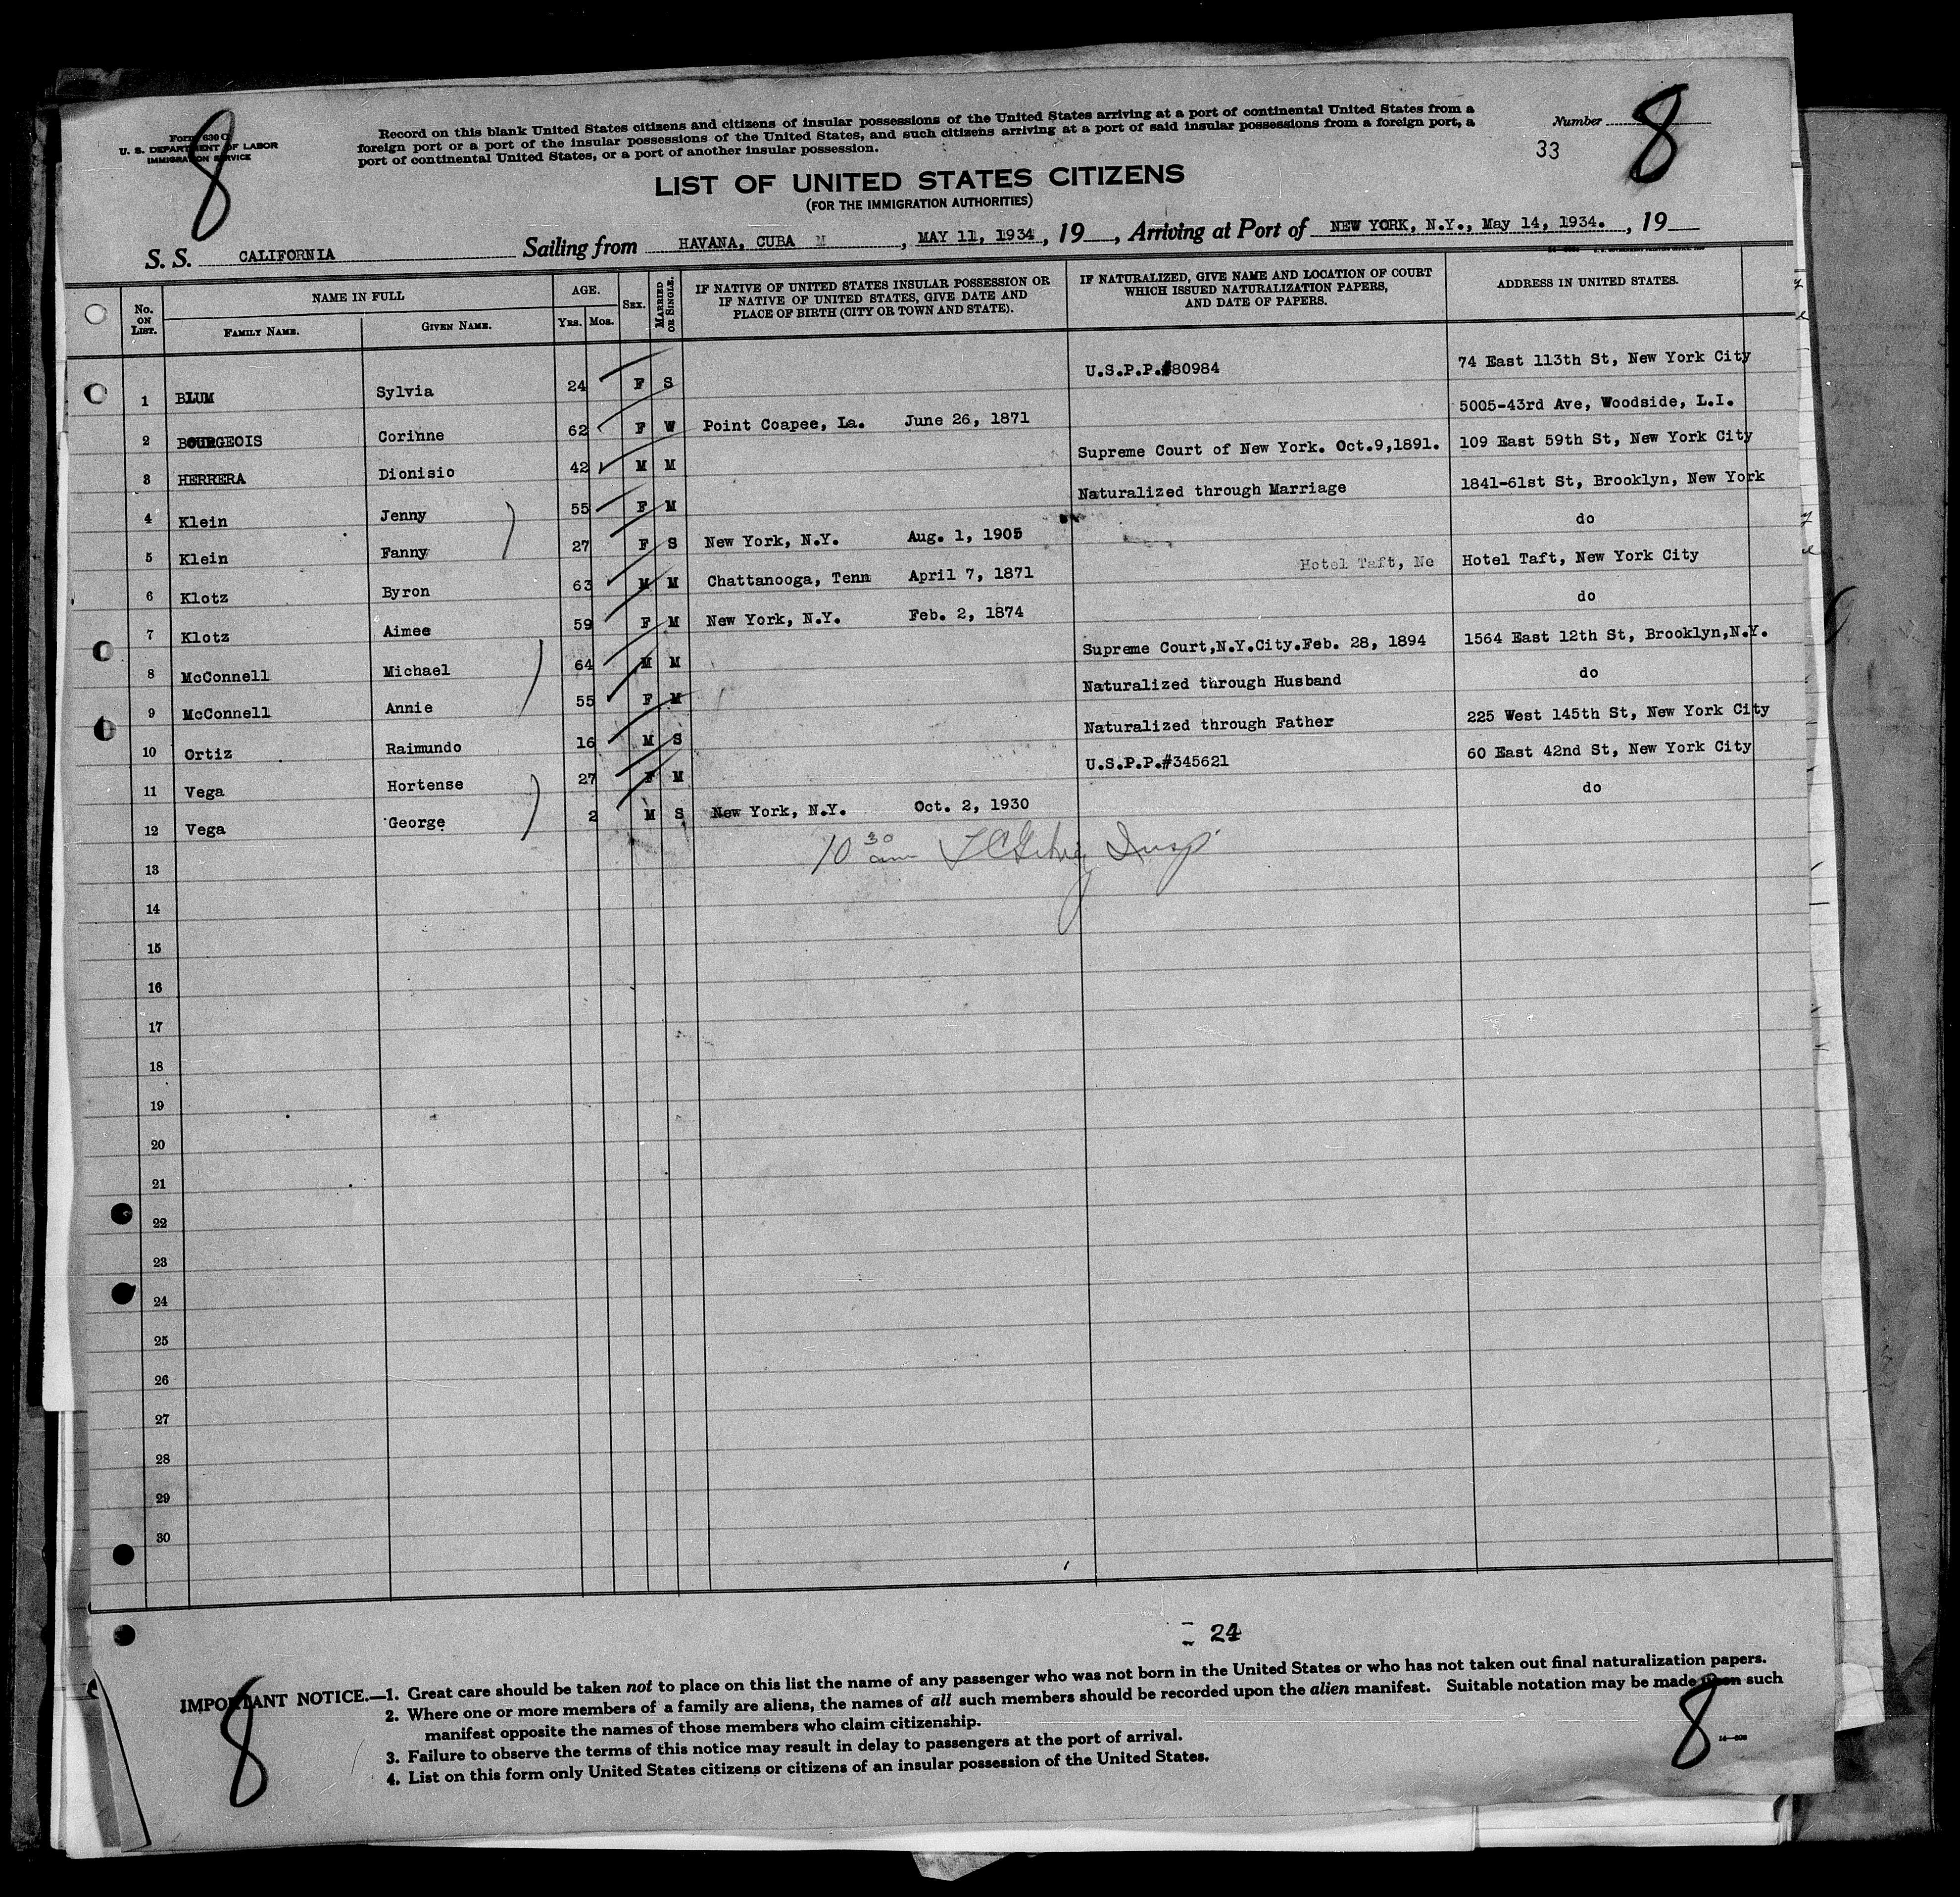 8
8
Form 630 C
U. S. DEPARTMENT OF LABOR
IMMIGRATION SERVICE
Record on this blank United States citizens and citizens of insular possessions of the United States arriving at a port of continental United States from a
foreign port or a port of the insular possessions of the United States, and such citizens arriving at a port of said insular possessions from a foreign port, a
port of continental United States, or a port of another insular possession.
Number
33
LIST OF UNITED STATES CITIZENS
(FOR THE IMMIGRATION AUTHORITIES)
S. S. CALIFORNIA Sailing from HAVANA, CUBA M , MAY 11, 1934 , 19 , Arriving at Port of NEW YORK, N.Y., May 14, 1934. , 19
No. ON LIST. NAME IN FULL AGE. SEX. MARRIED OR SINGLE. IF NATIVE OF UNITED STATES INSULAR POSSESSION OR IF NATIVE OF UNITED STATES, GIVE DATE AND PLACE OF BIRTH (CITY OR TOWN AND STATE). IF NATURALIZED, GIVE NAME AND LOCATION OF COURT WHICH ISSUED NATURALIZATION PAPERS, AND DATE OF PAPERS. ADDRESS IN UNITED STATES.
FAMILY NAME. GIVEN NAME. YRS. MOS.
1 BLUM Sylvia 24 F S U.S.P.P.#80984 74 East 113th St, New York City
2 BOURGEOIS Corinne 62 F W Point Coapee, La. June 26, 1871 5005-43rd Ave, Woodside, L.I.
3 HERRERA Dionisio 42 M M Supreme Court of New York. Oct.9,1891. 109 East 59th St, New York City
4 Klein Jenny 55 F M Naturalized through Marriage 1841-61st St, Brooklyn, New York
5 Klein Fanny 27 F S New York, N.Y. Aug. 1, 1905 do
6 Klotz Byron 63 M M Chattanooga, Tenn April 7, 1871 Hotel Taft, Ne Hotel Taft, New York City
7 Klotz Aimee 59 F M New York, N.Y. Feb. 2, 1874 do
8 McConnell Michael 64 M M Supreme Court,N.Y.City.Feb. 28, 1894 1564 East 12th St, Brooklyn,N.Y.
9 McConnell Annie 55 F M Naturalized through Husband do
10 Ortiz Raimundo 16 M S Naturalized through Father 225 West 145th St, New York City
11 Vega Hortense 27 F M U.S.P.P.#345621 60 East 42nd St, New York City
12 Vega George 2 M S New York, N.Y. Oct. 2, 1930 do
10 30 am Insp
13
14
15
16
17
18
19
20
21
22
23
24
25
26
27
28
29
30
24
IMPORTANT NOTICE.—1. Great care should be taken not to place on this list the name of any passenger who was not born in the United States or who has not taken out final naturalization papers.
2. Where one or more members of a family are aliens, the names of all such members should be recorded upon the alien manifest. Suitable notation may be made upon such
manifest opposite the names of those members who claim citizenship.
3. Failure to observe the terms of this notice may result in delay to passengers at the port of arrival.
4. List on this form only United States citizens or citizens of an insular possession of the United States.
8
8